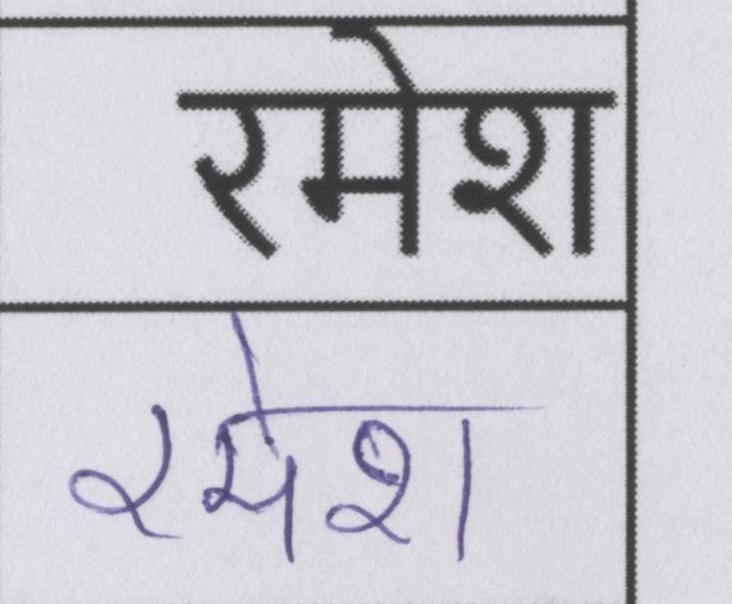 रमेश
रमेश